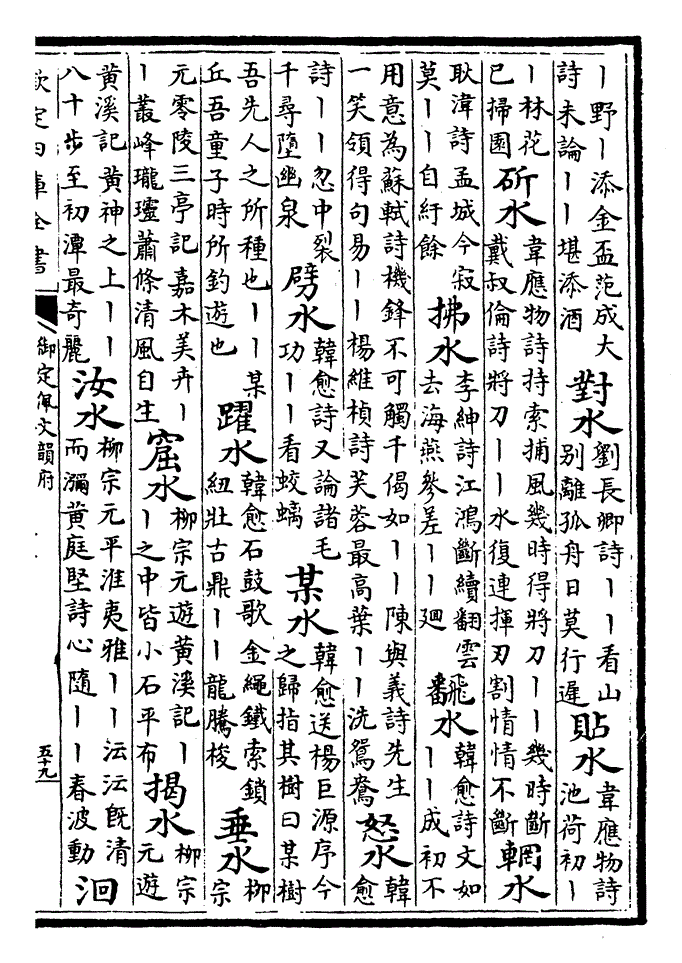 ｜野｜添金盃范成大
詩未論｜｜堪添酒
對水
劉長卿詩｜｜看山
别離孤舟日莫行遲
貼水
韋應物詩
池荷初｜
｜林花
已掃園
斫水
韋應物詩持索捕風幾時得將刀｜｜幾時斷
戴叔倫詩將刀｜｜水復連揮刃割情情不斷
輞水
耿湋詩孟城今寂
莫｜｜自紆餘
拂水
李紳詩江鴻斷續翻雲
去海燕參差｜｜廻
飜水
韓愈詩文如
｜｜成初不
用意為蘇軾詩機鋒不可觸千偈如｜｜陳與義詩先生
一笑領得句易｜｜楊維楨詩芙蓉最高葉｜｜洗鴛鴦
怒水
韓
愈
詩｜｜忽中裂
千尋墮幽泉
劈水
韓愈詩又論諸毛
功｜｜看蛟螭
某水
韓愈送楊巨源序今
之歸指其樹曰某樹
吾先人之所種也｜｜某
丘吾童子時所釣遊也
躍水
韓愈石鼓歌金繩鐵索鎖
紐壯古鼎｜｜龍騰梭
垂水
柳
宗
元零陵三亭記嘉木美卉｜
｜叢峰瓏𤫊蕭條清風自生
窟水
柳宗元遊黄溪記｜
｜之中皆小石平布
揭水
柳宗
元遊
黄溪記黄神之上｜｜
八十步至初潭最奇麗
汝水
柳宗元平淮夷雅｜｜沄沄既清
而瀰黄庭堅詩心隨｜｜春波動
洄
欽定四庫全書
御定佩文韻府
五十九